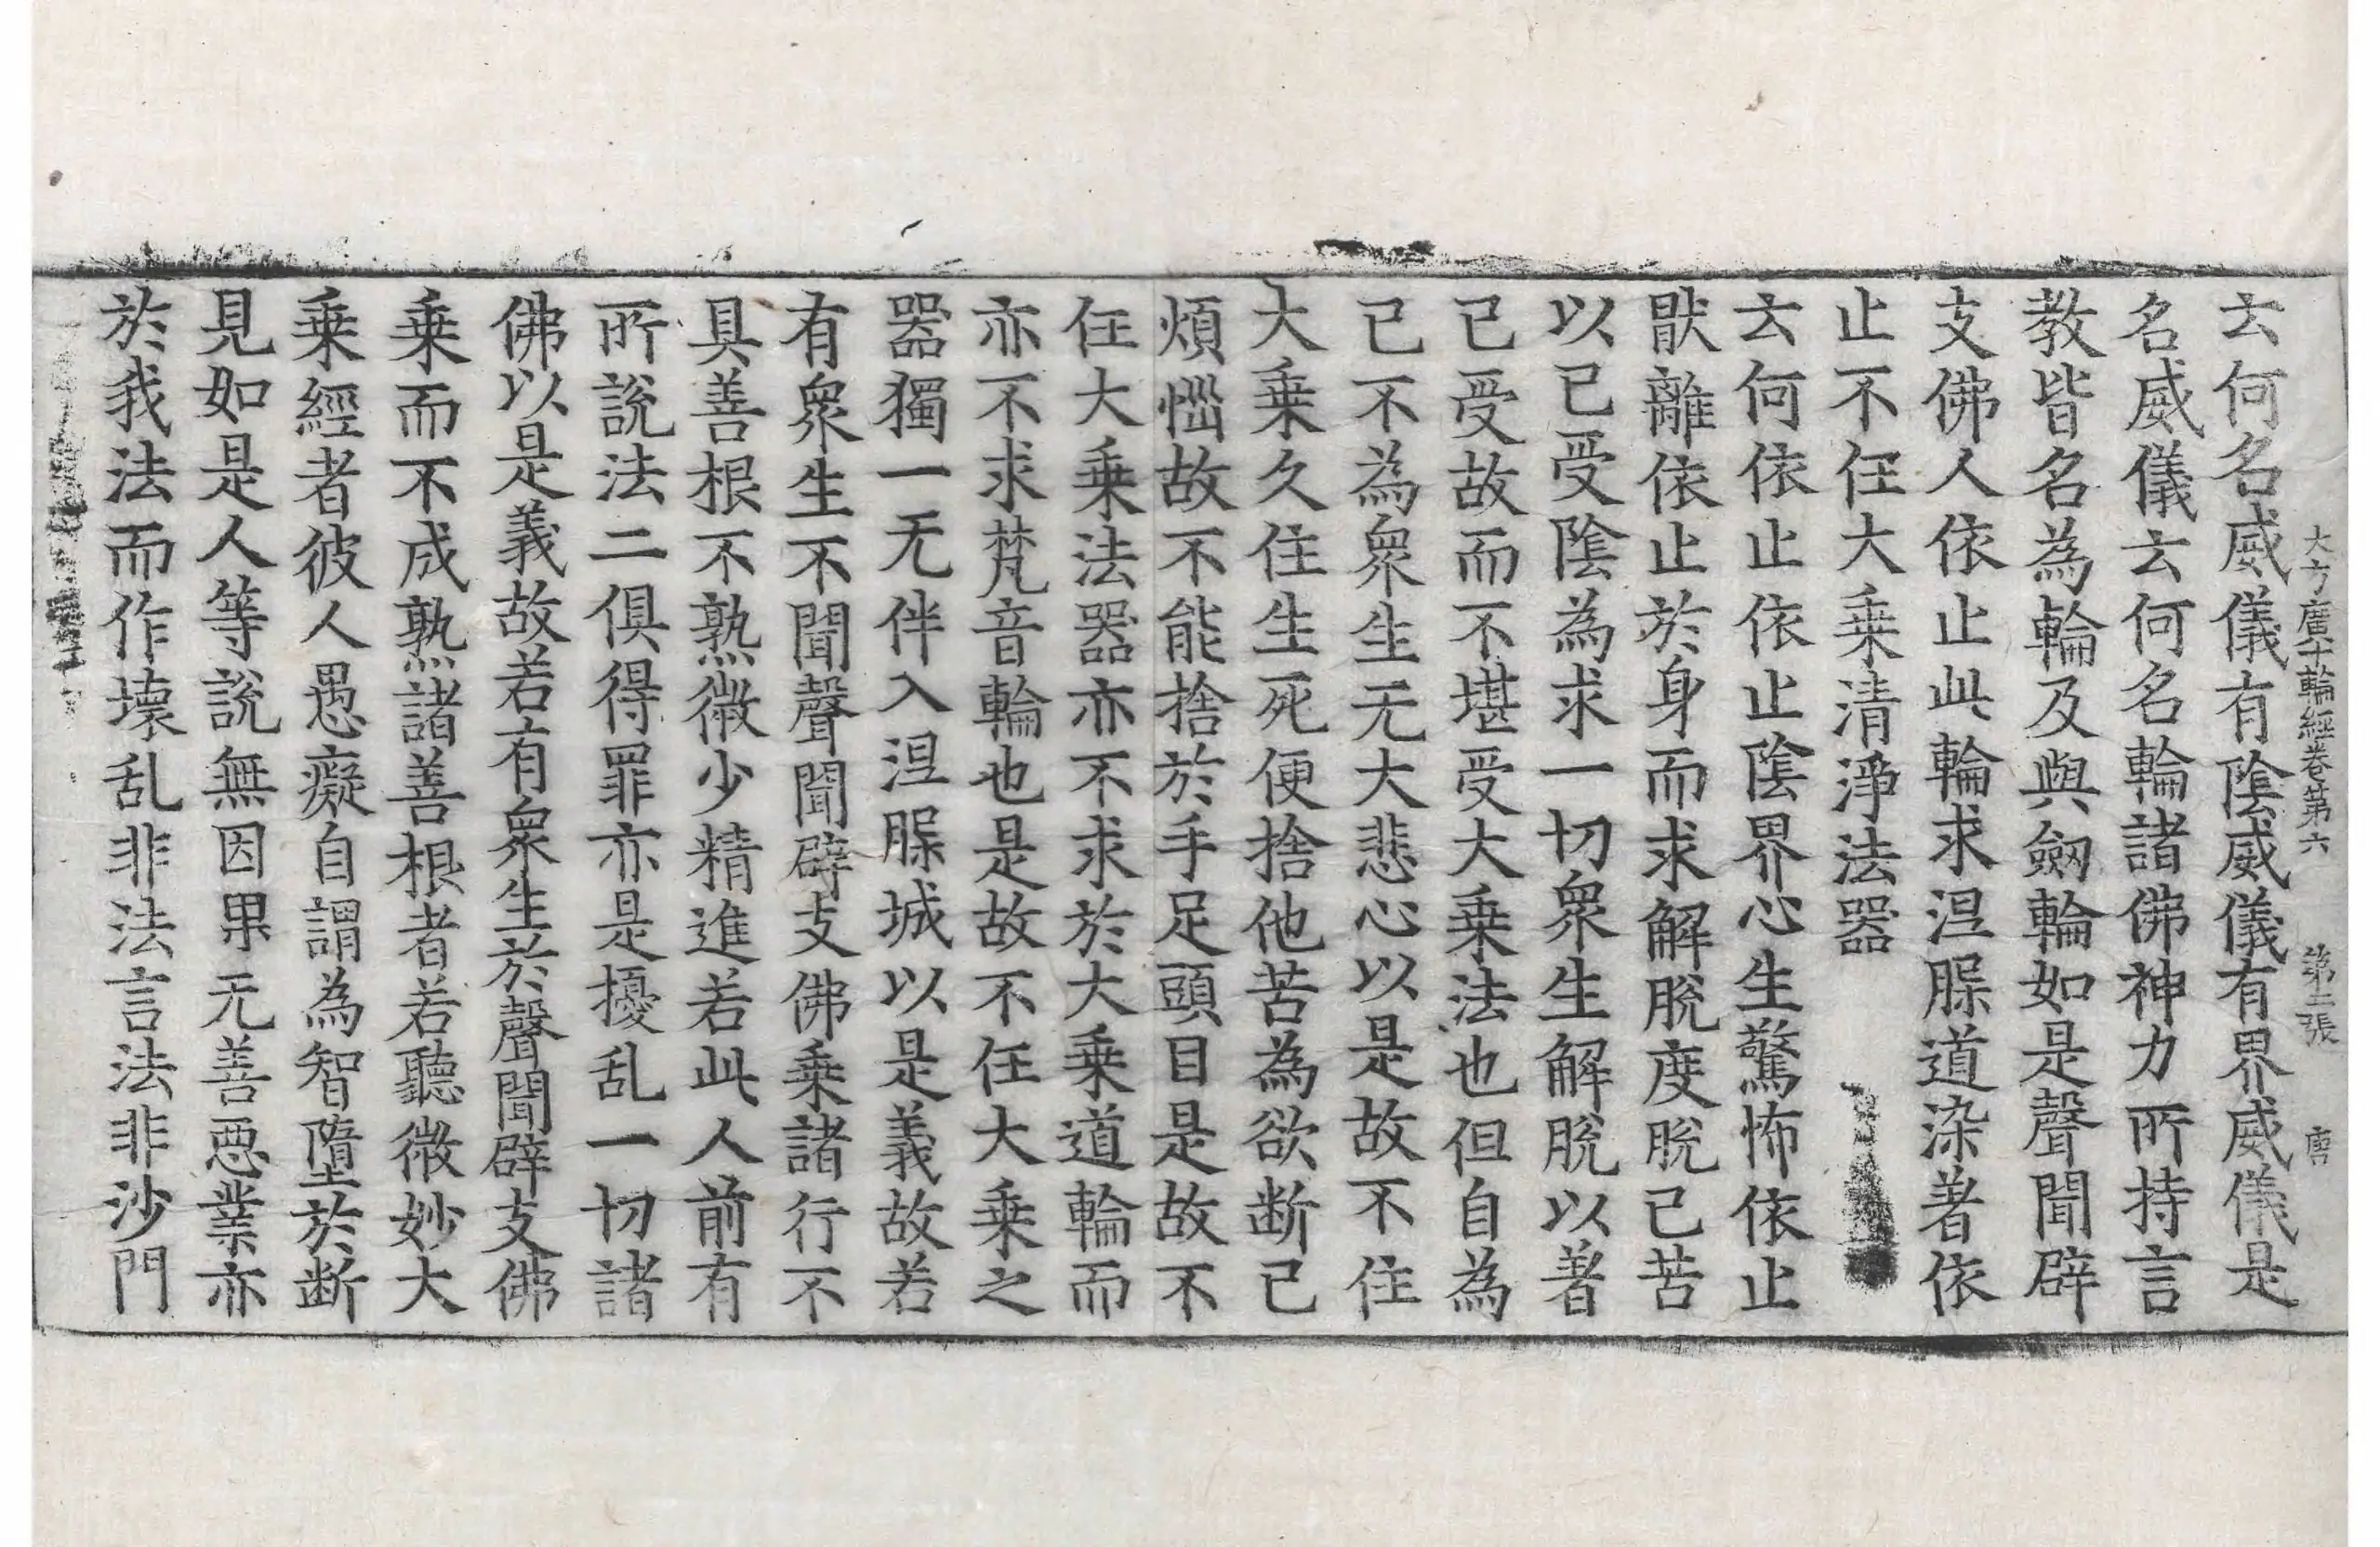 大方廣十輪經卷第六　第二張　唐
云何名威儀有陰威儀有界威儀是
名威儀云何名輪諸佛神力所持言
教皆名為輪及與劔輪如是聲聞辟
支佛人依止此輪求涅槃道染著依
止不任大乗清淨法器
云何依止依止陰界心生驚怖依止
猒離依止於身而求解脫度脫己苦
以已受陰為求一切眾生解脫以著
已受故而不堪受大乗法也但自為
已不為眾生无大悲心以是故不住
大乗久住生死便捨他苦為欲断己
煩惱故不能捨於手足頭目是故不
任大乗法器亦不求於大乗道輪而
亦不求梵音輪也是故不任大乗之
器獨一无伴入涅槃城以是義故若
有眾生不聞聲聞辟支佛乗諸行不
具善根不熟微少精進若此人前有
所說法二俱得罪亦是擾乱一切諸
佛以是義故若有眾生於聲聞辟支佛
乗而不成熟諸善根者若聽微妙大
乗經者彼人愚癡自謂為智墮於断
見如是人等說無因果无善惡業亦
於我法而作壞乱非法言法非沙門